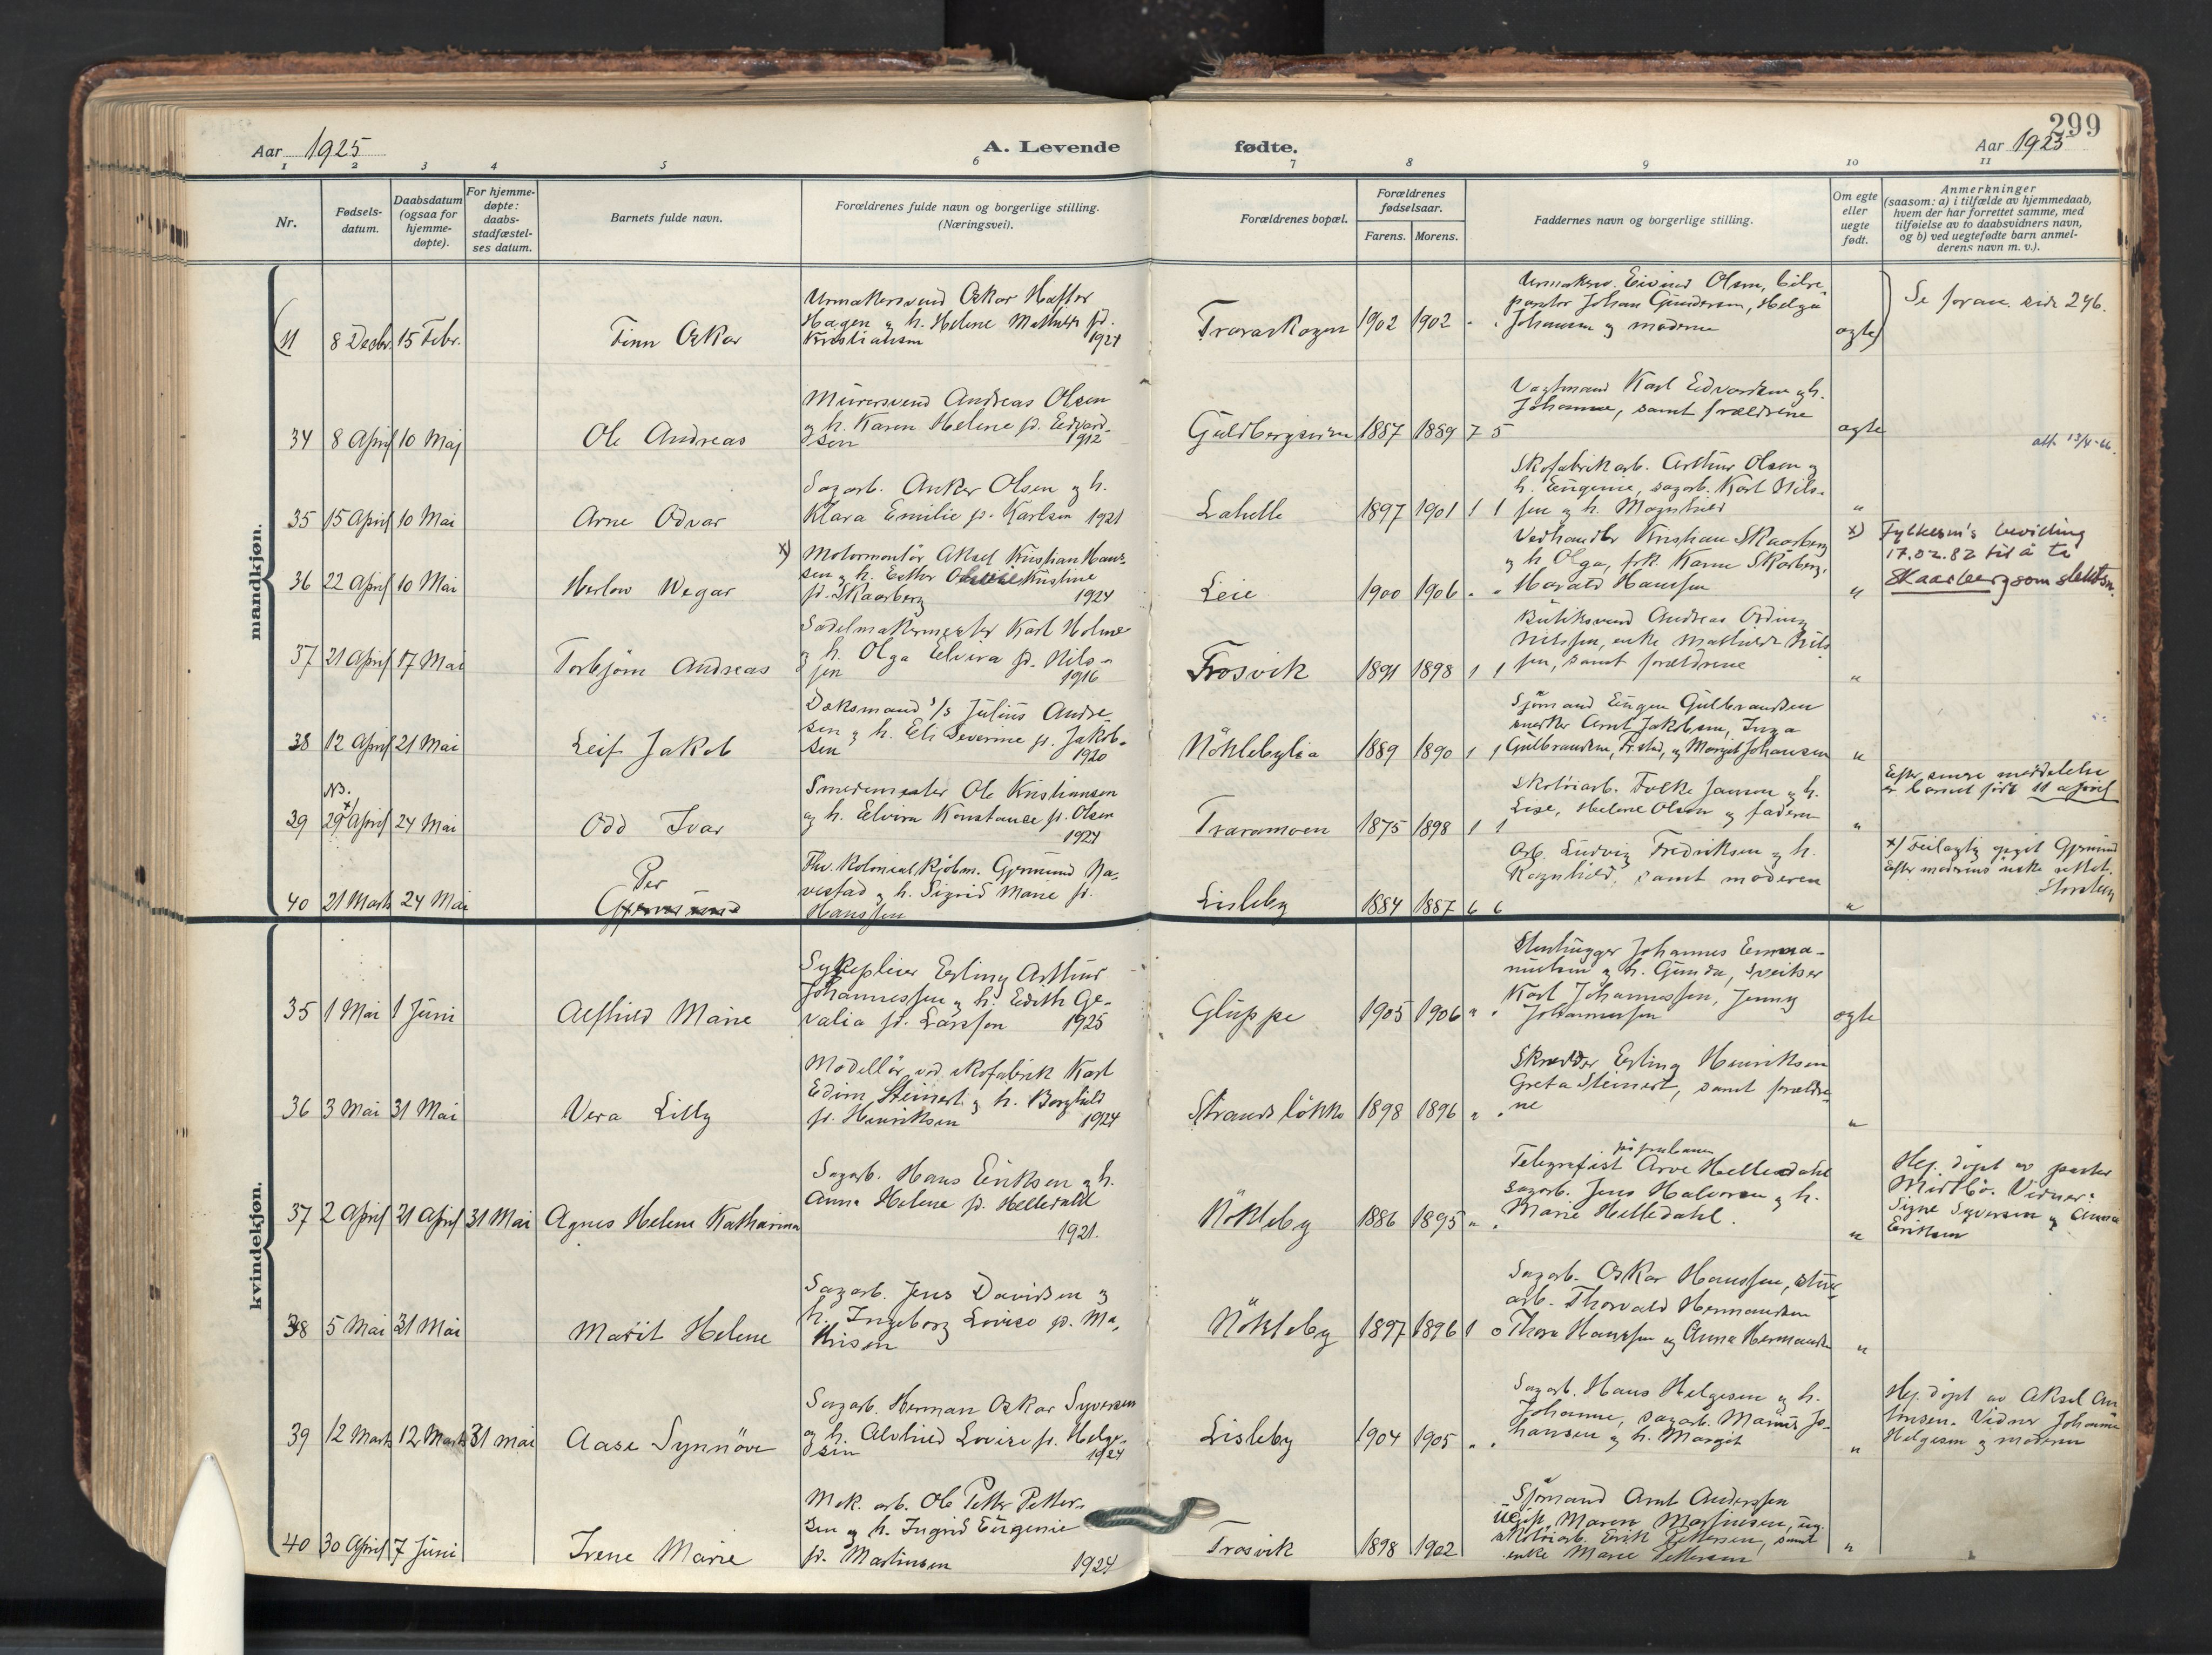 299
Aar 1925
A. Levende
fødte.
Aar 1925
1 2 3 4 5 6 7 8 9 10 11
Nr.
Fødsels-
datum.
Daabsdatum
(ogsaa for
hjemme-
døpte).
For hjemme-
døpte:
daabs-
stadfæstel-
ses datum.
Barnets fulde navn.
Forældrenes fulde navn og borgerlige stilling.
(Næringsvei).
Forældrenes bopæl.
Forældrenes
fødselsaar.
Farens. Morens.
Faddernes navn og borgerlige stilling.
Om egte
eller
uegte
født.
Anmerkninger
(saasom: a) i tilfælde av hjemmedaab,
hvem der har forrettet samme, med
tilføielse av to daabsvidners navn,
og b) ved uegtefødte barn anmel-
derens navn m. v.).
mandkjøn.
11 8 Decbr. 15 Febr.
Finn Oskar
Urmakersvend Oskar Hafter
Hagen og h. Helene
Kristiansen 1924
Traraskogen 1902 1902
Johan Gundersen, Helga
Johansen og moderen
egte
Se foran side 246.
34 8 April 10 Mai
Ole Andreas
Murersvend Andreas Olsen
og h. Karen Helene f. Edvard-
sen 1912
Guldbergsiden 1887 1889 7 5
Vagtmand Karl Edvardsen og h.
Johanne, samt forældrene
egte
att. 13/4-66.
35 15 April 10 Mai
Arne Odvar
Sagarb. Anker Olsen og h.
Klara Emilie f. Karlsen 1921
Lahelle 1897 1901 1 1
Skofabrikarb. Arthur Olsen og
h. Eugenie, sagarb. Karl Nils-
sen og h. Magnhild
"
36 22 April 10 Mai
Herlow Wegar
x) Motormontör Aksel Kristian Hans-
sen og h. Esther Kristine
f. Skaarberg 1924
Leie 1900 1906
Vedhandler Kristian Skaarberg
og h. Olga, frk. Karen Skarberg,
Harald Hanssen
"
x) Fylkesm's bevilling
17.02.82 til å ta
Skaarberg som slektsn.
37 21 April 17 Mai
Torbjörn Andreas
Sadelmakermester Karl Holme
og h. Olga Elvira f. Nils-
sen 1916
Trosvik 1891 1898 1 1
Butiksvend Andreas Odin
Nilssen, enke Mathilde Nils-
sen, samt forældrene
"
38 12 April 21 Mai
Leif Jakob
Dæksmand s/s Julius Andre-
sen og h. Eli Severine f. Jakob-
sen 1920
Nöklebylia 1889 1890 1 1
Sjömand Eugen Gulbrandsen
snekker Arnt Jakobsen, Inga
Gulbrandsen, Fr.stad, og Margit Johansen
"
NB.
39 29 x) April 24 Mai
Odd Ivar
Smedemester Ole Kristiansen
og h. Elvira Konstanse f. Olsen
1924
Traramoen 1875 1898 1 1
Skotöiarb. Folke Janson og h.
Lise, Helene Olsen og faderen
"
Efter senere meddelelse
er barnet født 11 april
40 21 Marts 24 Mai
Per
Gjermund
Fhv. Kolonialkjöbm. Gjermund Na-
vestad og h. Sigrid Marie f.
Hanssen
Lisleby 1884 1887 6 6
Arb. Ludvig Fredriksen og h.
Ragnhild, samt moderen
"
x) Feilagtig opgit Gjermund
Efter moderens önske rettet.
kvindekjøn.
35 1 Mai 1 Juni
Alfhild Marie
Sykepleier Erling Arthur
Johannessen og h. Edith Ge-
valia f. Larsson 1925
Gluppe 1905 1906 "
Stenhugger Johannes Emma-
nuelsen og h. Gunda, sveitser
Karl Johannessen, Jenny
Johannessen
egte
36 3 Mai 31 Mai
Vera Lilly
Modellör ved skofabrik Karl
Edvin Steinert og h. Borghild
f. Henriksen 1924
Strandslökka 1898 1896 "
Skrædder Erling Henriksen
Greta Steinert, samt forældre-
ne
"
37 2 April 21 April 31 Mai
Agnes Helene Katharina
Sagarb. Hans Eriksen og h.
Anna Helene f. Helledahl
1921.
Nökleby 1886 1895 "
Telegrafist Arve Helledahl
sagarb. Jens Halvorsen og h.
Marie Helledahl.
"
Hj. döpt av pastor
Midtbö. Vidner:
Signe Syversen og Anna
Eriksen
38 5 Mai 31 Mai
Marit Helene
Sagarb. Jens Davidsen og
h. Ingeborg Lovise f. Ma-
thisen
Nökleby 1897 1896 1 0
Sagarb. Oskar Hanssen, stuer
arb. Thorvald Hermandsen
Thora Hanssen og Anna Hermandsen
"
39 12 Marts 12 Marts 31 mai
Aase Synnöve
Sagarb. Herman Oskar Syversen
og h. Alvhild Lovise f. Helge-
sen 1924
Lisleby 1904 1905
Sagarb. Hans Helgesen og h.
Johanne, sagarb. Marius Jo-
hansen og h. Margit
"
Hj. döpt av Aksel An-
tonsen. Vidner Johanne
Helgesen og moderen
40 30 April 7 Juni
Irene Marie
Mek. arb. Ole Petter Petter-
sen og h. Ingrid Eugenie
f. Martinsen 1924
Trosvik 1898 1902
Sjömand Arnt Anderssen
ugift Maren Martinsen, ug.
skotöiarb. Erik Pettersen, samt
enke Marie Pettersen
"